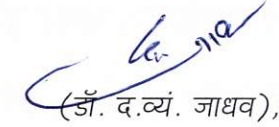 (डॉ. द.व्यं. जाधव),